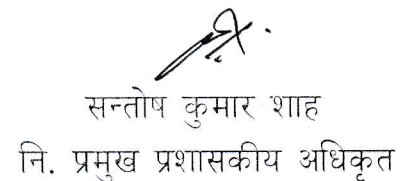 सन्तोष कुमार शाह
नि. प्रमुख प्रशासकीय अधिकृत